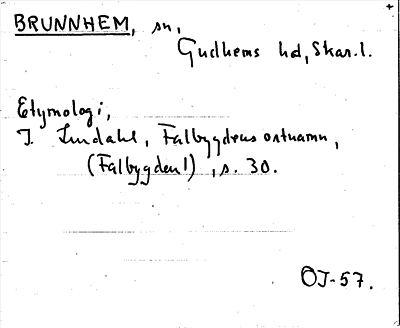 BRUNNHEM, sn,
Gudhems hd, Skar.l.
Etymologi,
J. Lindahl, Falbygdens ortnamn,
(Falbygden 1), s. 30.
OJ-57.